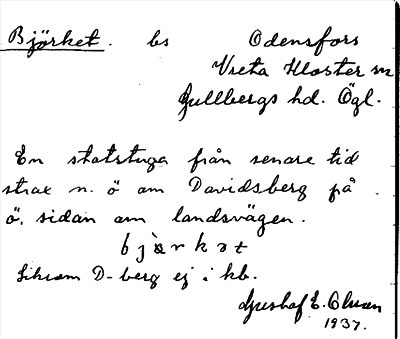 Björket. bs Odensfors
Vreta Kloster sn
Gullbergs hd. Ögl.
En statstuga från senare tid
strax n. ö om Davidsberg på
ö. sidan om landsvägen.
bjàrkət
Liksom D-berg ej i kb.
Gustaf E. Olsson
1937.